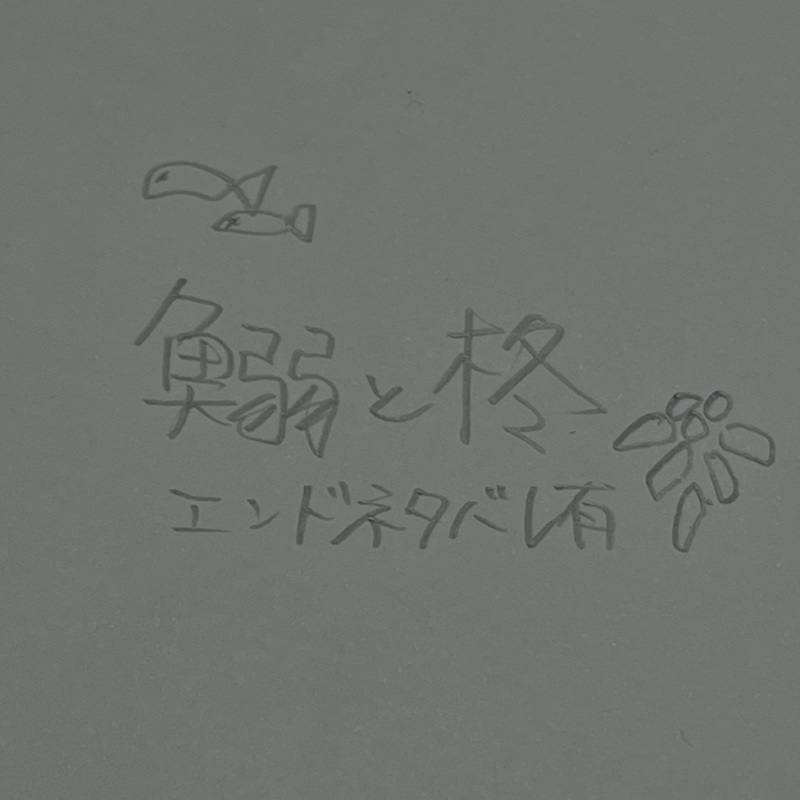 鰯と柊
エンドネタバレ有